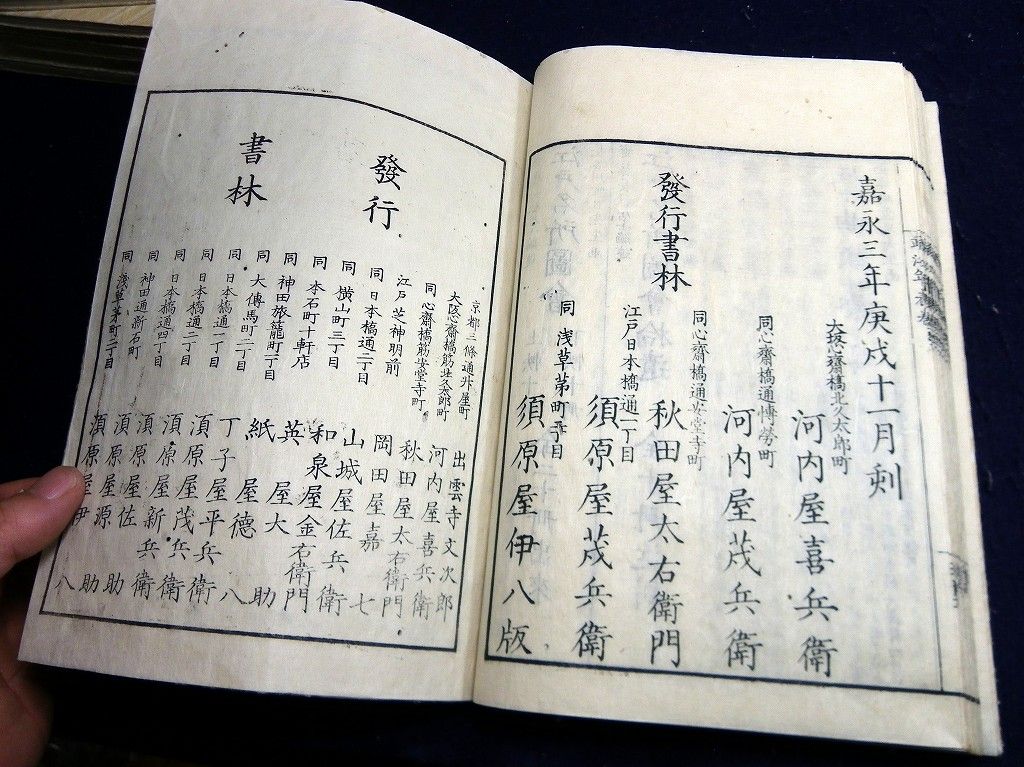 嘉永三年庚戌十一月刻
大坂心齋橋北久太郎町
河内屋喜兵衛
同心齋橋通博労町
河内屋茂兵衛
同心齋橋通安堂寺町
秋田屋太右衛門
發行書林
江戸日本橋通一丁目
須原屋茂兵衛
同浅草茅町二丁目
須原屋伊八版
發行
書林
京都三條通升屋町
出雲寺文次郎
大坂心齋橋筋北久太郎町
河内屋喜兵衛
同心齋橋筋安堂寺町
秋田屋太右衛門
江戸芝神明前
岡田屋嘉七
同日本橋通二丁目
山城屋佐兵衛
同横山町三丁目
和泉屋金右衛門
同本石町十軒店
英屋大助
同神田旅籠町一丁目
紙屋徳八
同大傳馬町二丁目
丁子屋平兵衛
同日本橋通一丁目
須原屋茂兵衛
同日本橋通二丁目
須原屋新兵衛
同日本橋通四丁目
須原屋佐助
同神田通新石町
須原屋源助
同浅草茅町二丁目
須原屋伊八